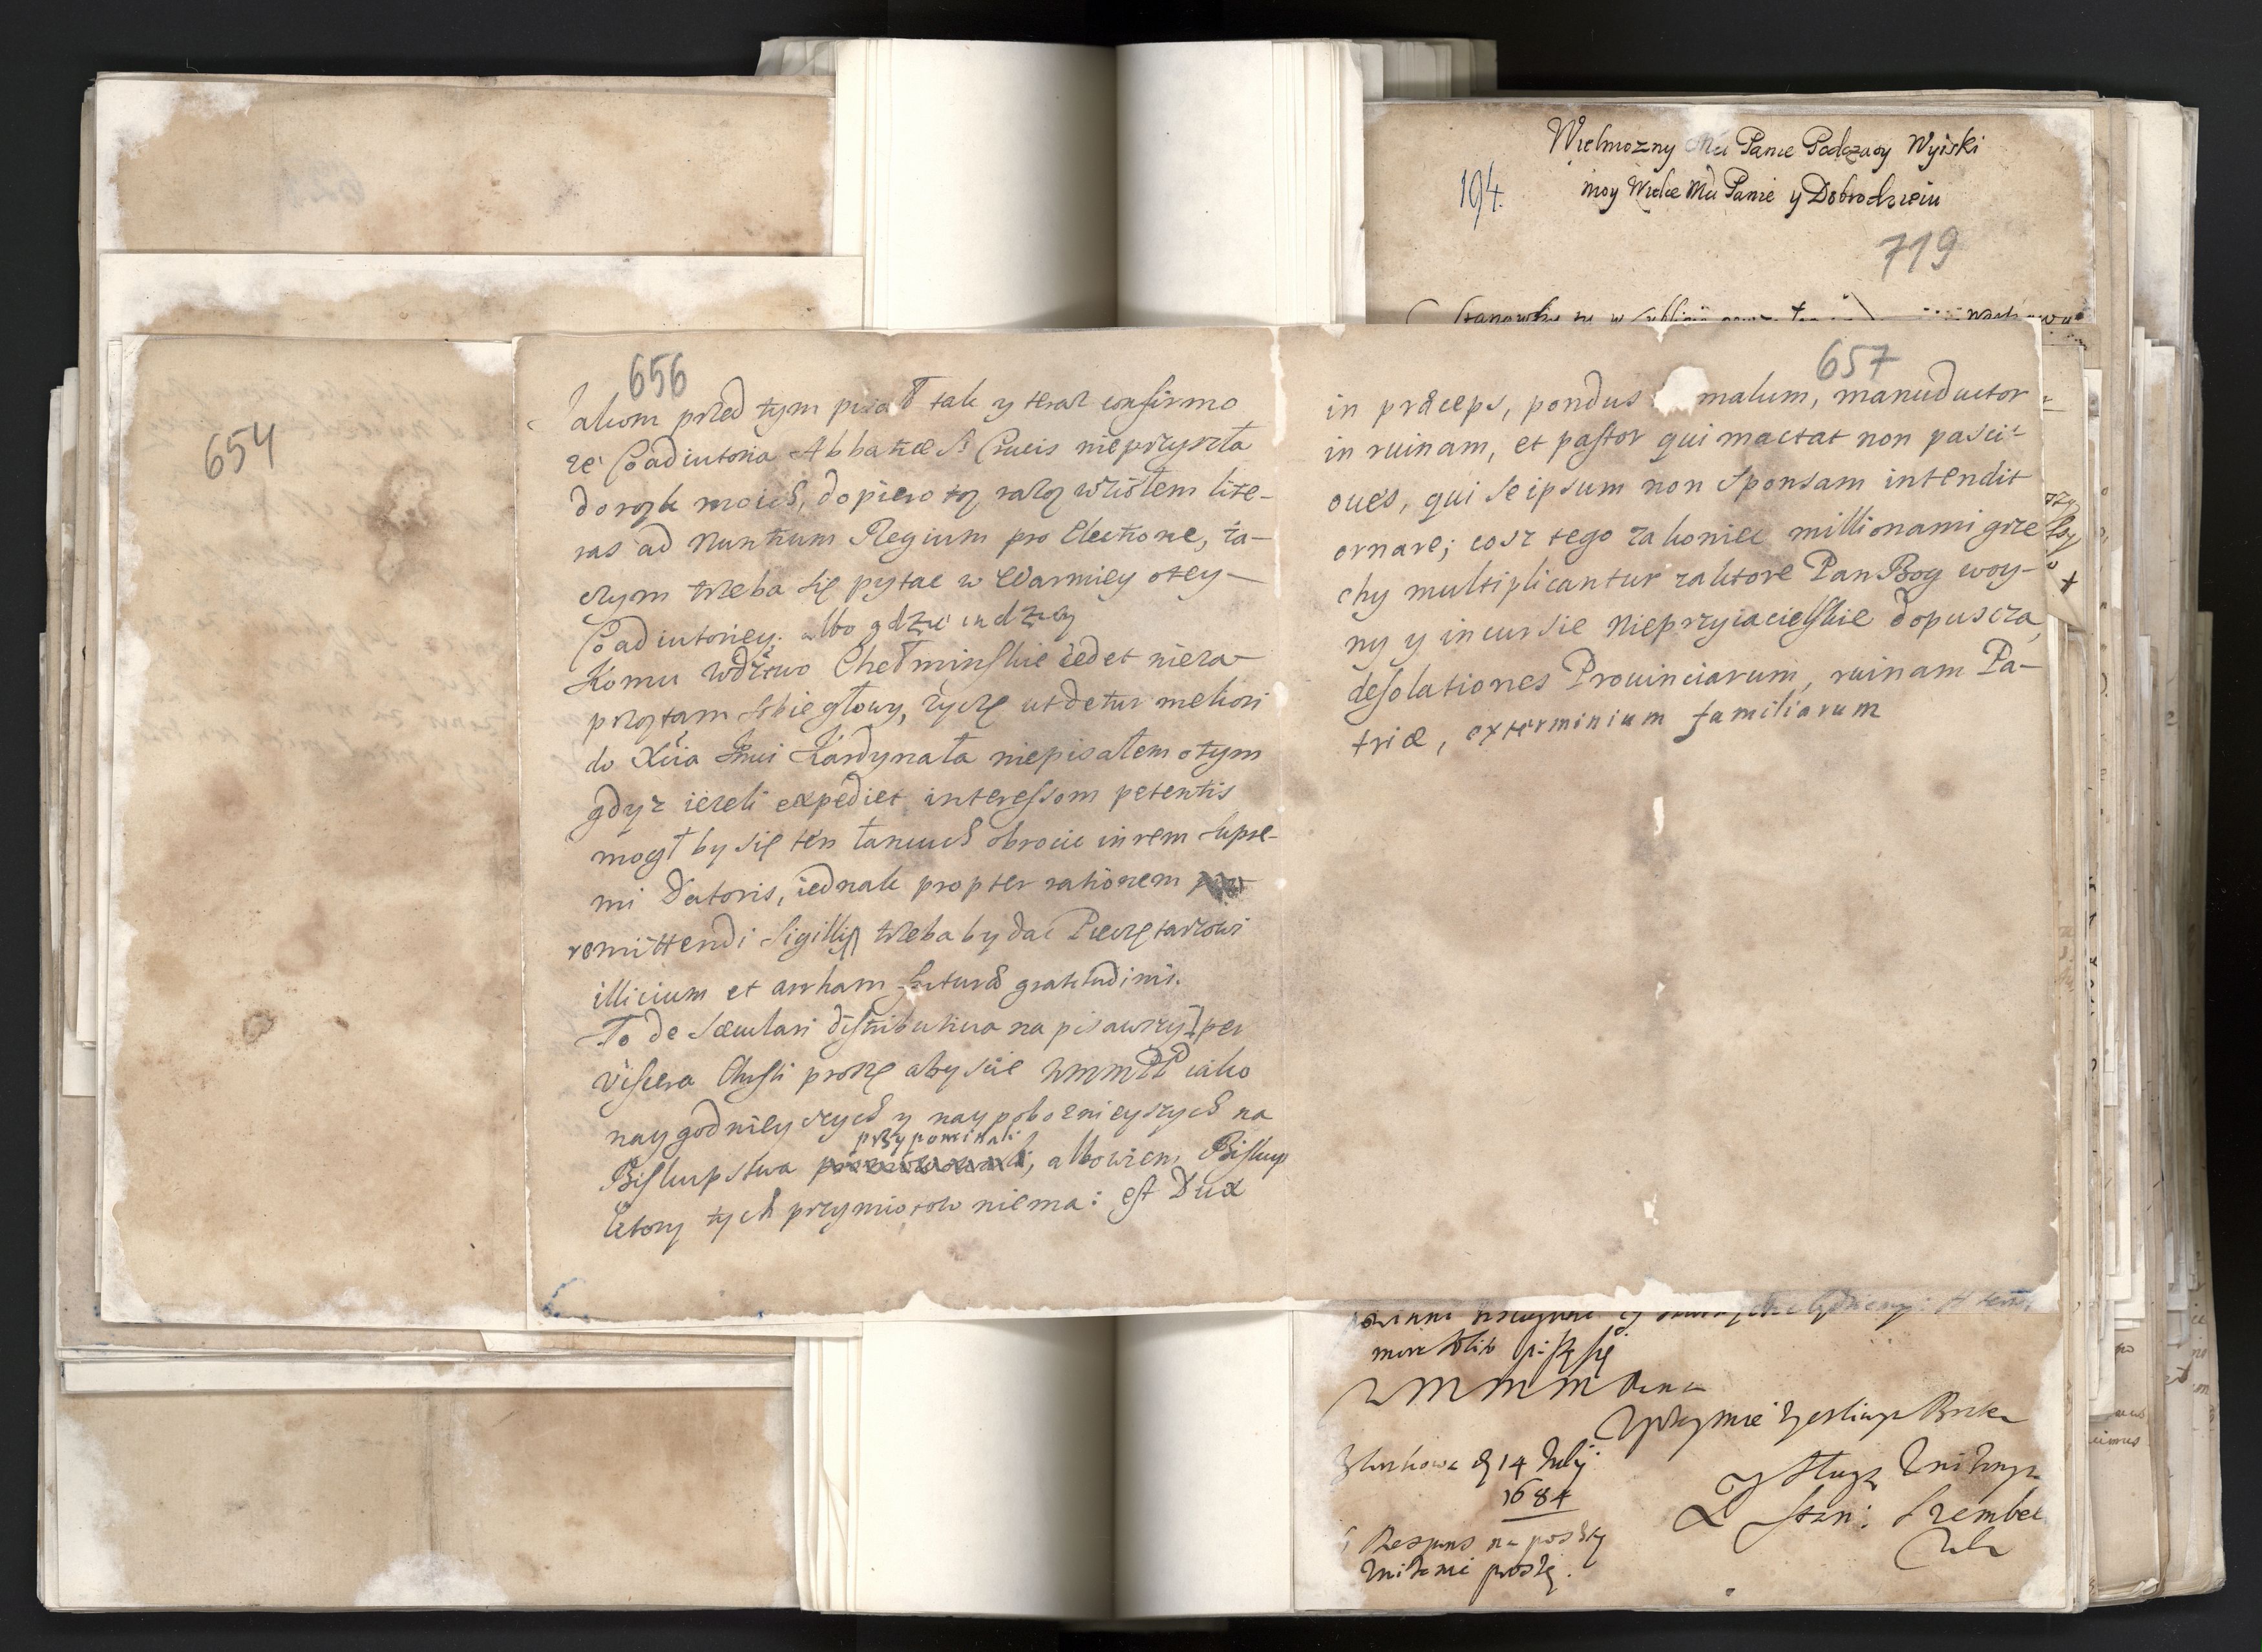 654
656
Jakom przed tym pisał tak y teraz confirmo
że Coadiutoria Abbatiæ S Crucis nieprzyszła
do rąk moich, dopiero tą razą wziołem lite-
ras ad Nuntium Regium pro Electione, za-
czym trzeba się pytac w Warmiey o tey
Coadiutoriey. albo gdzie indziey
Komu wdztwo Chełminskie cedet nieza-
przątam sobie głowy, życzę ut detur meliori
do Xcia Jmci Kardynała niepisałem o tym
gdyz iezeli expediet interessom petentis
mogł by się ten łancuch obrocic in rem supre-
mi Datoris, iednak propter rationem
remittendi Sigilli trzeba by dac Pieczętarzowi
illicium et arrham futuræ gratitudinis.
To de sæculari distributiva napisawszy per
viscera Chrsti proszę abyscie WMMPP iako
naygodnieyszych y naypobożnieyszych na
przypominali
Biskupstwa, albowiem Biskup
ktory tych przymiotow niema: est Dux
657
in præceps, pondus malum, manuductor
in ruinam, et pastor qui mactat non pascit
oues, qui seipsum non Sponsam intendit
ornare; cosz tego za koniec millionami grze
chy multiplicantur za ktore Pan Bog woy-
ny y incursie Nieprzyiacielskie dopuscza,
desolationes Prouinciarum, ruinam Pa-
triæ, exterminium familiarum
Wielmozny Mci Panie Podczaszy Wyiski
194.
moy Wielce Mci Panie y Dobrodzieiu
719
WMMM Pana
14 July
1684
Respons na poszty
proszę.